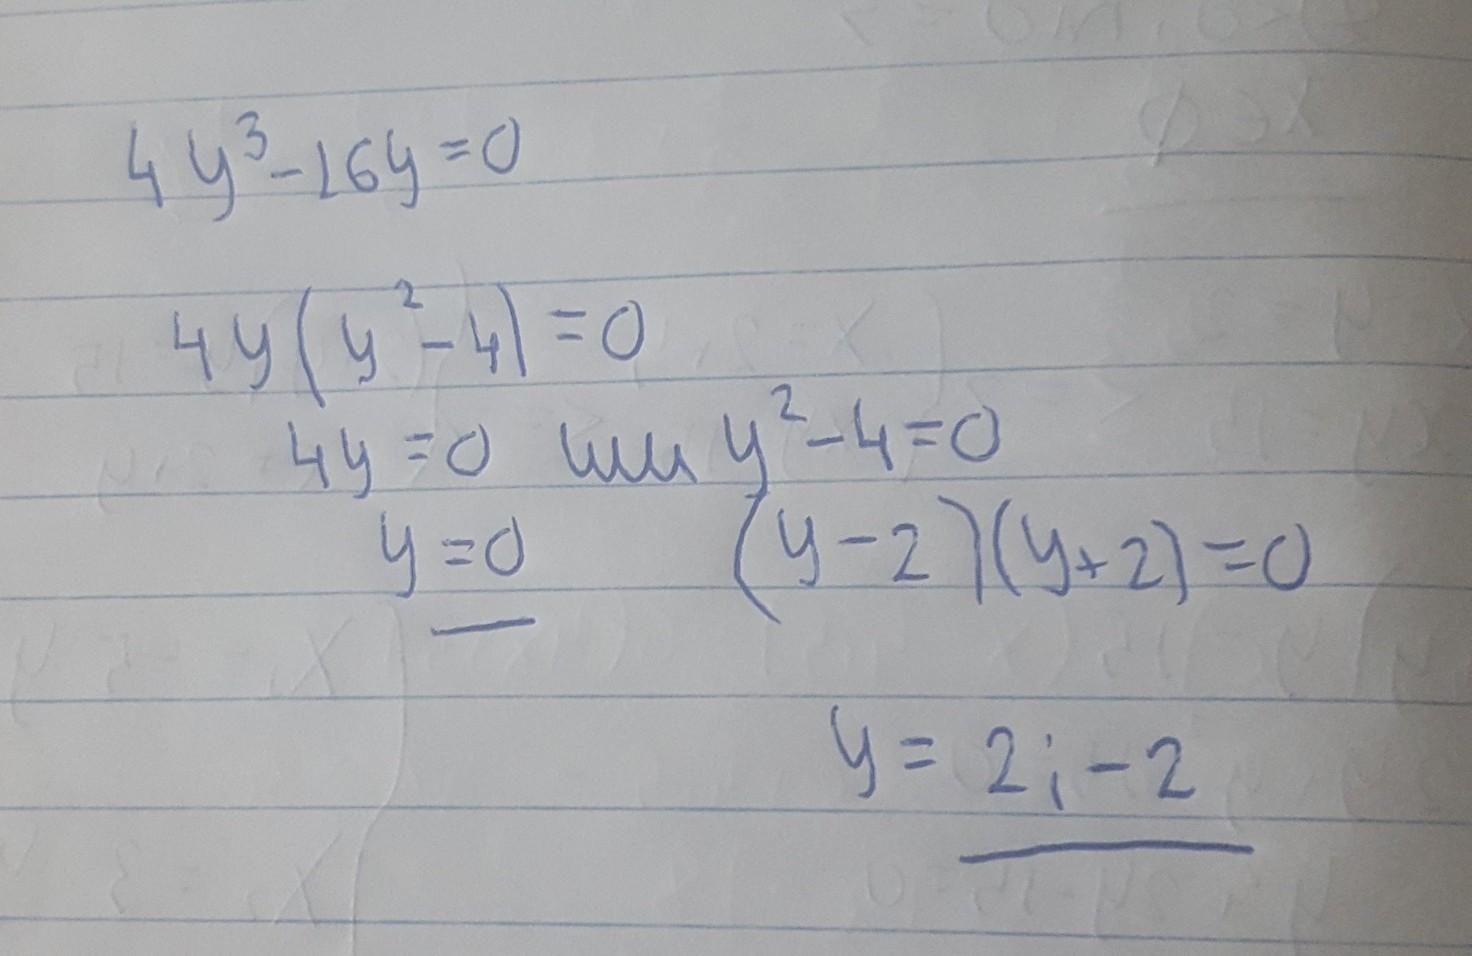 4y³-16y=0
4y(y²-4)=0
4y=0 или y²-4=0
y=0 (y-2)(y+2)=0
y= 2;-2